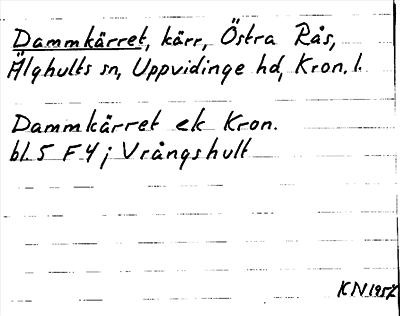 Dammkärret, kärr, Östra Rås,
Älghults sn, Uppvidinge hd, Kron. l.
Dammkärret ek Kron.
bl. 5 F 4 j Vrångshult
KN 1957